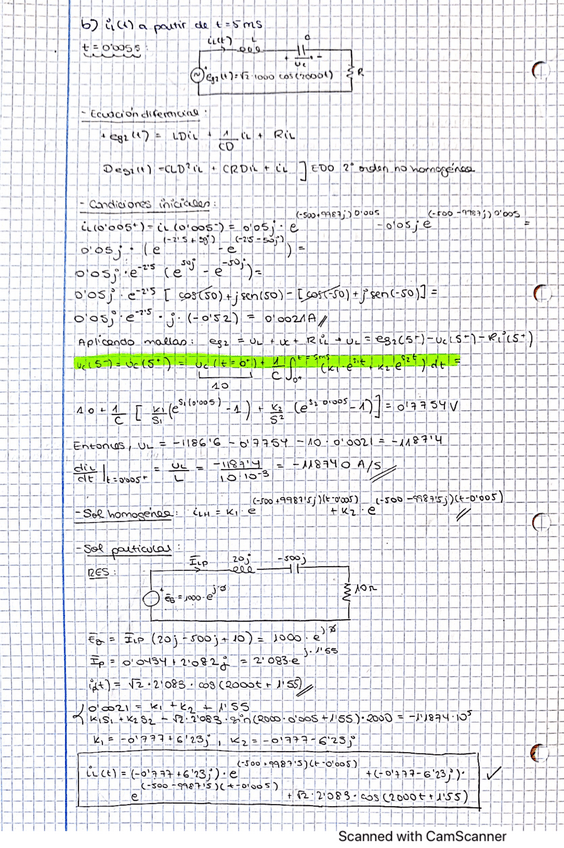 b) iL(t) a partir de t=5ms
t=0'005s:
iL(t) L C
+ uc -
eg2(t)=√2·1000 cos(2000t) R
- Ecuación diferencial:
+eg2(t) = LDiL + 1/CD iL + RiL
Deg2(t)=CLD²iL + CRDiL + iL ] EDO 2º orden no homogénea
- Condiciones iniciales:
iL(0'005+)=iL(0'005-) = 0'05j·e^(-500+9987j)0'005 -0'05j e^(-500-9987j)0'005 =
0'05j·(e^(-2'5+50j) - e^(-2'5-50j)) =
0'05j·e^-2'5 (e^50j - e^-50j)=
0'05j·e^-2'5 [cos(50)+jsen(50)-[cos(50)+jsen(-50)]=
0'05j·e^-2'5·j·(-0'52) = 0'0021A
Aplicando mallas: eg2 = uL + uc + RiL → uL = eg2(5-)-uc(5-)-Ri(5-)
uc(5-)=uc(5+) = uc(t=0+) + 1/C ∫0+^t=5ms (k1·e^s1t + k2 e^s2t) dt =
10
10 + 1/C [ k1/S1 (e^S1(0'005) -1) + k2/S2 (e^S2 0'005 -1)] = 0'7754V
Entonces, uL = -1186'6 - 0'7754 - 10·0'0021 = -1187'4
diL/dt |t=0'005+ = uL/L = -1187'4/10·10^-3 = -118740 A/s
- Sol homogénea: iLH = k1·e^(-500+9987'5j)(t-0'005) + k2·e^(-500-9987'5j)(t-0'005)
- Sol particular:
RES: ILP 20j -500j
Eg=1000·e^j·0 10Ω
Eg = ILP (20j-500j+10) = 1000·e^j·0
Ip = 0'0434+2'082j = 2'083·e^j·1'55
i(t) = √2·2'083·cos(2000t+1'55)
0'0021 = k1+k2+1'55
k1S1+k2S2 -√2·2'083·sin(2000·0'005+1'55)·2000 = -1'1874·10^5
k1 = -0'777+6'23j, k2 = -0'777-6'23j
iL(t) = (-0'777+6'23j)·e^(-500+9987'5)(t-0'005) +(-0'777-6'23j)·
e^(-500-9987'5)(t-0'005) +√2·2'083·cos(2000t+1'55)
Scanned with CamScanner